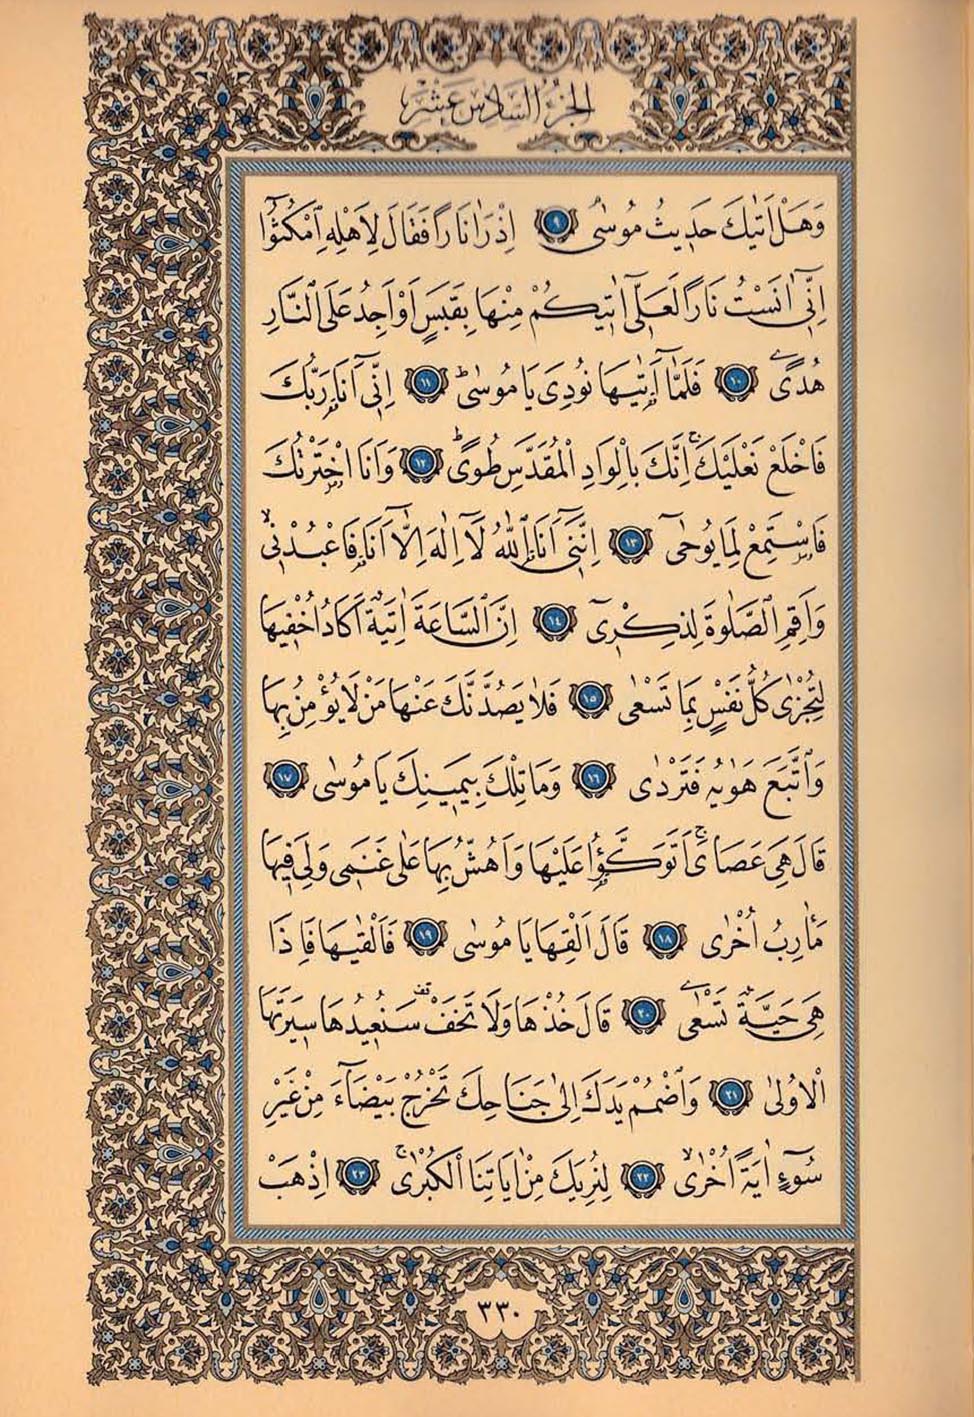 الجزء السادس عشر
وَهَلْ اَتٰيكَ حَدٖيثُ مُوسٰىۘ ﴿٩﴾ اِذْ رَاٰ نَارًا فَقَالَ لِاَهْلِهِ ٱمْكُثُٓوا
اِنّٖٓى اٰنَسْتُ نَارًا لَعَلّٖٓى اٰتٖيكُمْ مِنْهَا بِقَبَسٍ اَوْ اَجِدُ عَلَى ٱلنَّارِ
هُدًى ﴿١٠﴾ فَلَمَّٓا اَتٰيهَا نُودِىَ يَا مُوسٰىؕ ﴿١١﴾ اِنّٖٓى اَنَا۬ رَبُّكَ
فَاخْلَعْ نَعْلَيْكَۚ اِنَّكَ بِالْوَادِ الْمُقَدَّسِ طُوًىؕ ﴿١٢﴾ وَاَنَا اخْتَرْتُكَ
فَاسْتَمِعْ لِمَا يُوحٰى ﴿١٣﴾ اِنَّنٖٓى اَنَا ٱللّٰهُ لَٓا اِلٰهَ اِلَّٓا اَنَا۬ فَاعْبُدْنٖىۙ
وَاَقِمِ ٱلصَّلٰوةَ لِذِكْرٖى ﴿١٤﴾ اِنَّ ٱلسَّاعَةَ اٰتِيَةٌ اَكَادُ اُخْفٖيهَا
لِتُجْزٰى كُلُّ نَفْسٍ بِمَا تَسْعٰى ﴿١٥﴾ فَلَا يَصُدَّنَّكَ عَنْهَا مَنْ لَا يُؤْمِنُ بِهَا
وَٱتَّبَعَ هَوٰيهُ فَتَرْدٰى ﴿١٦﴾ وَمَا تِلْكَ بِيَمٖينِكَ يَا مُوسٰى ﴿١٧﴾
قَالَ هِىَ عَصَاىَۚ اَتَوَكَّؤُ۬ا عَلَيْهَا وَاَهُشُّ بِهَا عَلٰى غَنَمٖى وَلِىَ فٖيهَا
مَاٰرِبُ اُخْرٰى ﴿١٨﴾ قَالَ اَلْقِهَا يَا مُوسٰى ﴿١٩﴾ فَاَلْقٰيهَا فَاِذَا
هِىَ حَيَّةٌ تَسْعٰى ﴿٢٠﴾ قَالَ خُذْهَا وَلَا تَخَفْ سَنُعٖيدُهَا سٖيرَتَهَا
الْاُولٰى ﴿٢١﴾ وَٱضْمُمْ يَدَكَ اِلٰى جَنَاحِكَ تَخْرُجْ بَيْضَٓاءَ مِنْ غَيْرِ
سُٓوءٍ اٰيَةً اُخْرٰىۙ ﴿٢٢﴾ لِنُرِيَكَ مِنْ اٰيَاتِنَا الْكُبْرٰىۚ ﴿٢٣﴾ اِذْهَبْ
٣٣٠